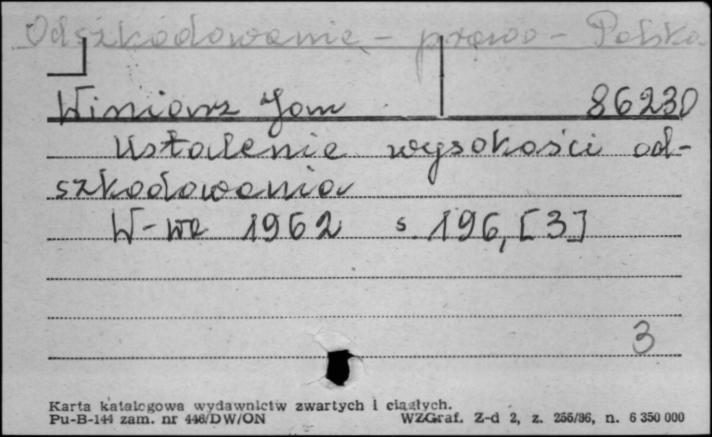 Odszkodowanie - prawo - Polska
Winiarz Jan 86230
Ustalenie wysokości od-
szkodowania
W-wa 1962 s. 196, [3]
3
Karta katalogowa wydawnictw zwartych i ciągłych.
Pu-B-144 zam. nr 446/DW/ON WZGraf. Z-d 2, z. 255/86, n. 6 350 000